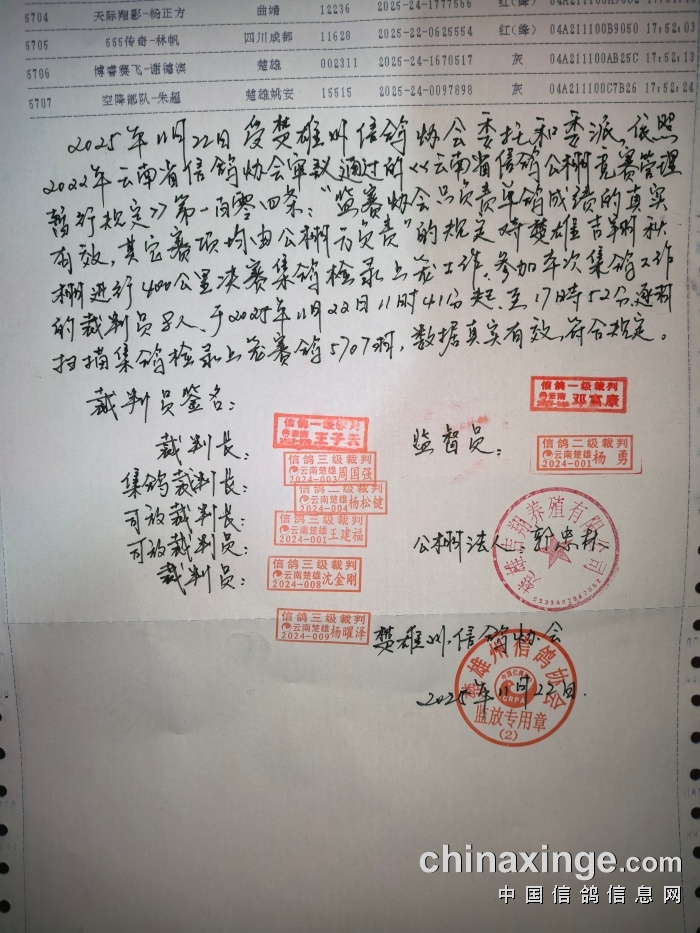 5704 天际翔影-杨正方 曲靖 12236 2025-24-1777566 红(绛)
5705 555传奇-林帆 四川成都 11628 2025-22-0625554 红(绛) 04A211100B9050 17:52:03
5706 博睿赛飞-谢德滨 楚雄 002311 2025-24-1670517 灰 04A211100AB25C 17:52:13
5707 空降部队-朱超 楚雄姚安 15515 2025-24-0097898 灰 04A211100C7B26 17:52:24
2025年11月22日受楚雄州信鸽协会委托和委派,依照
2022年云南省信鸽协会审议通过的《云南省信鸽公棚竞赛管理
暂行规定》第一百零四条:“监赛协会只负责单鸽成绩的真实
有效,其它赛项均由公棚方负责”的规定对楚雄吉翔秋
棚进行400公里决赛集鸽检录上笼工作。参加本次集鸽工作
的裁判员8人,于2025年11月22日11时41分起,至17时52分,逐羽
扫描集鸽检录上笼赛鸽5707羽,数据真实有效,符合规定。
裁判员签名:
信鸽一级裁判
云南 邓富康
信鸽一级裁判
王子天
裁判长:
监督员:
信鸽二级裁判
云南楚雄
2024-001 杨勇
信鸽三级裁判
云南楚雄
2024-003 周国强
集鸽裁判长:
信鸽二级裁判
云南楚雄
2024-004 杨松键
司放裁判长:
信鸽三级裁判
云南楚雄
2024-001 王建福
司放裁判员:
公棚法人:郭忠林
裁判员:
信鸽三级裁判
云南楚雄
2024-008 沈金刚
信鸽三级裁判
云南楚雄
2024-009 杨曜泽
楚雄吉翔养殖有限公司
楚雄州信鸽协会
楚雄州信鸽协会
CRPA
2025年11月22日.
监放专用章
(2)
chinaxinge.com
中国信鸽信息网